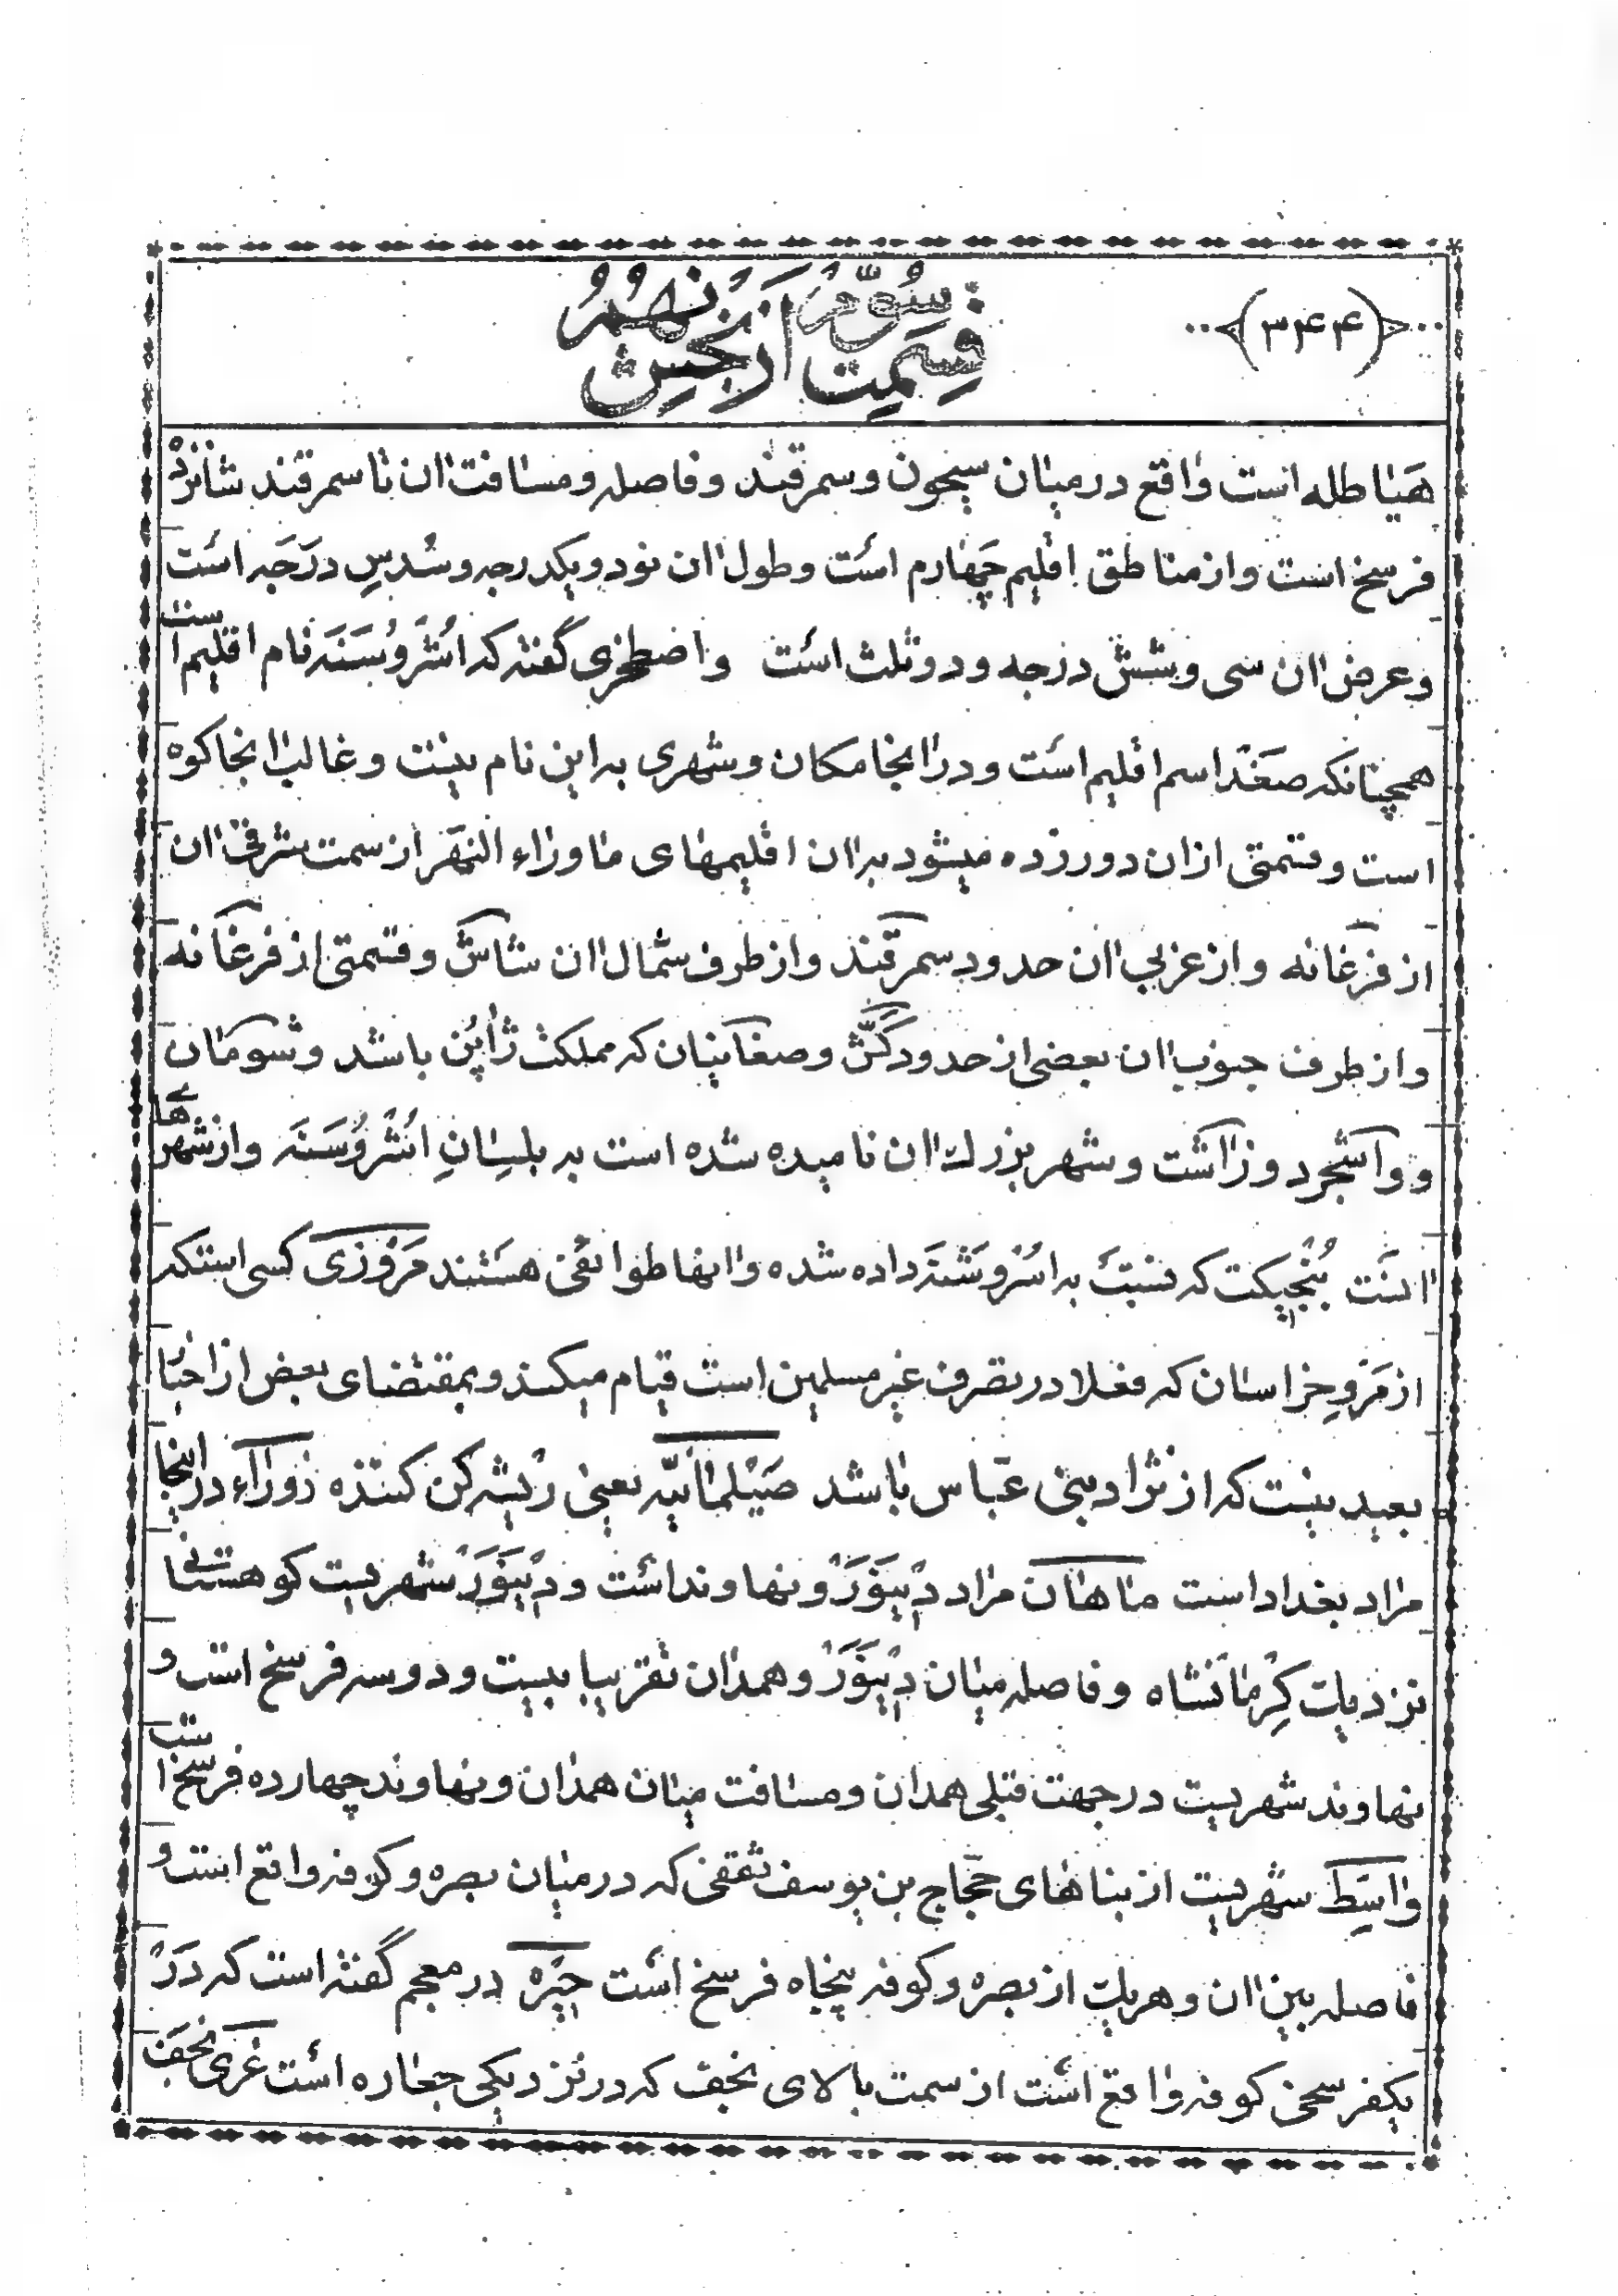 ﴿۳۴۴﴾
قسمت سوّم از بخش نهم
هَیاطله است واقع در میان سیحون و سمرقند و فاصله و مسافت ان تا سمرقند شانزدْ
فرسخ است و از مناطق اقلیم چَهارم است و طول ان نود و یکدرجه و سُدسِ دَرَجَه است
و عرض ان سی و شش درجه و دو ثلث است و اصطخری گفته که اُشْرَوُسَنَه نام اقلیم است
همچنانکه صَغَدْ اسم اقلیم است و در انجا مکان و شهری به این نام نیست و غالب انجا کوه
است و قسمتی از ان دور زده میشود به ان اقلیمهای ماوراء النَهَر از سمت شرقی ان
از فرغانه و از غربی ان حدود سمرقند و از طرف شمال ان شاش و قسمتی از فرغانه
و از طرف جنوب ان بعضی از حدود کَشّ و صغانیان که مملکت ژاپُن باشد و شومان
و واشجرد و زاشت و شهر بزرك ان نامیده شده است به بلِسانِ اُشْروُسَنَه و از شهر هاے
انست بُنْجیکت که نسبت به اسْرُوشَنَه داده شده و انها طوایفی هستند مَرْوَزی کسی استکه
از مَرْوِ خراسان که فعلا در تصرف غیر مسلمین است قیام میکند و بمقتضای بعض از اخبا
بعید نیست که از نژاد بنی عبّاس باشد صَیْلمانیّه یعنی ریشه کن کننده زَوراء در اینجا
مراد بغداد است ماهان مراد دینَوَرْ و نهاوند است و دینَوَرْ شهریست کوهستانی
نزدیك کِرْمانشاه و فاصله میان دینَوَرْ و همدان تقریبا بیست و دو سه فرسخ است و
نهاوند شهریست در جهت قبلی همدان و مسافت میان همدان و نهاوند چهارده فرسخ است
واسِط شهریست از بناهای حَجّاج بن یوسف ثقفی که در میان بصره و کوفه واقع است و
فاصله بین ان و هریك از بصره و کوفه پنجاه فرسخ است حیْره در معجم گفته است که دَرْ
یکفرسخی کوفه واقع است از سمت بالای نجف که در نزدیکی جعاره است غَری نجَف